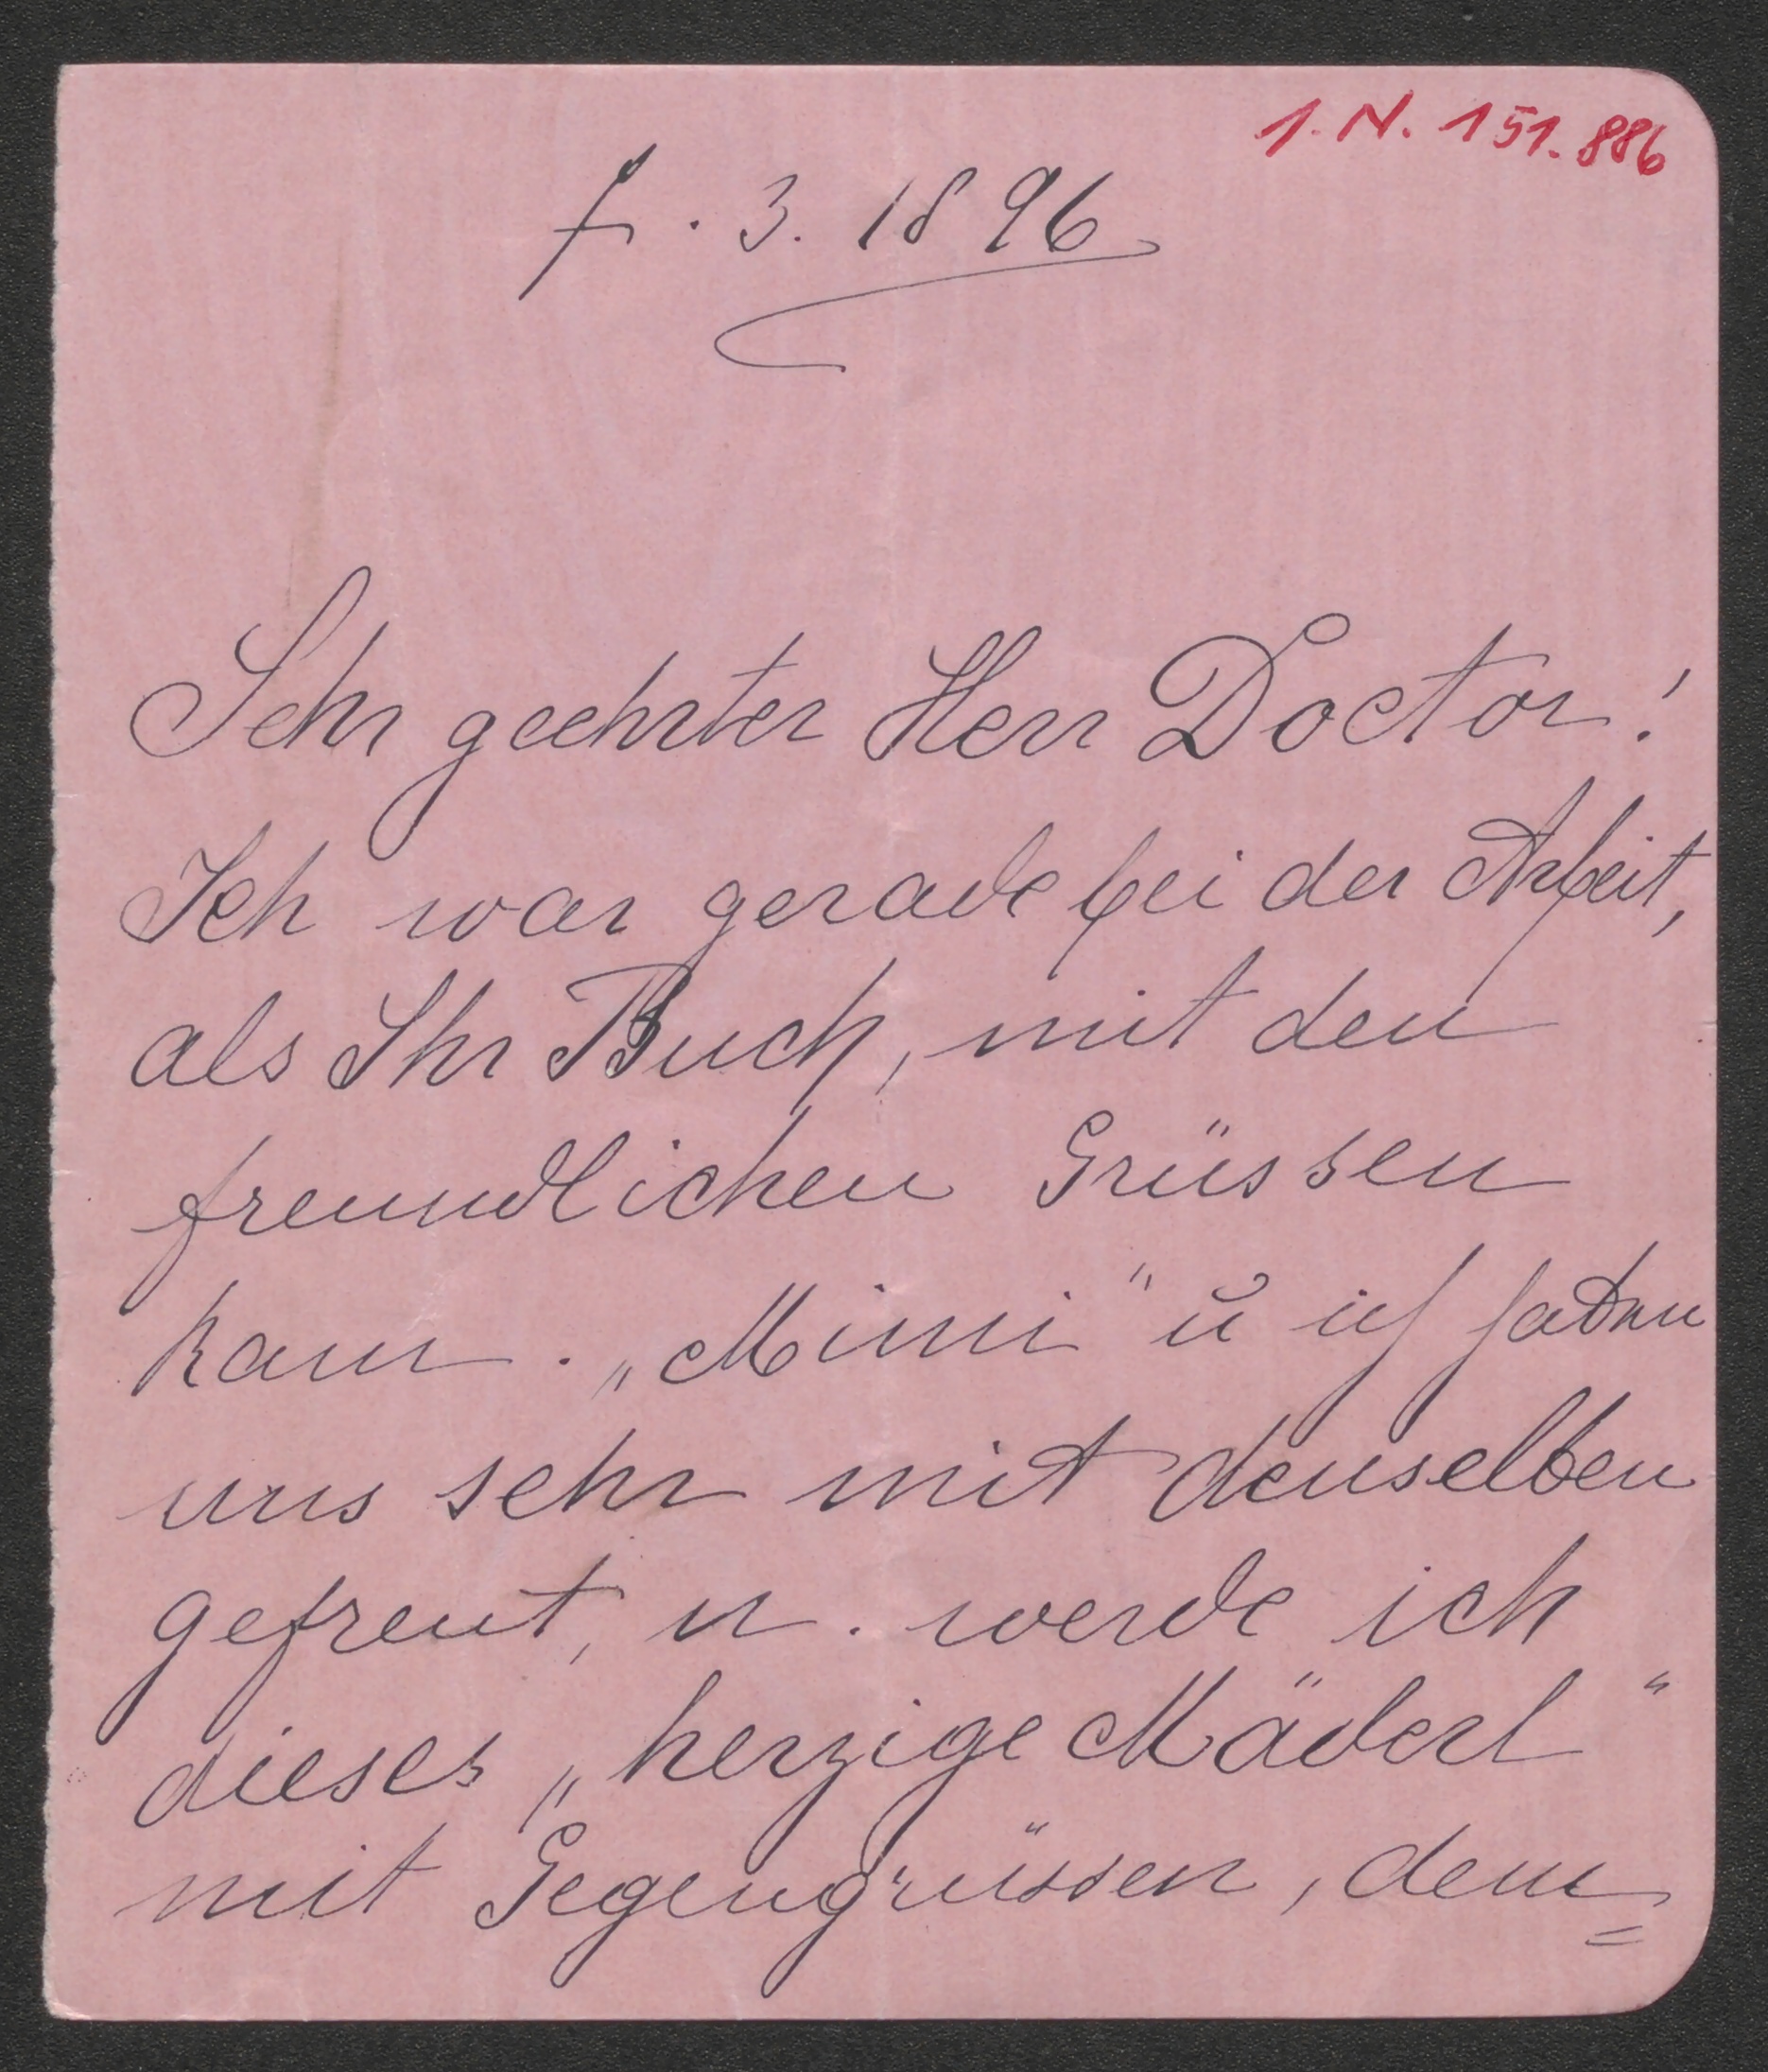 I. N. 151.886
7. 3. 1896
Sehr geehrter Herr Doctor!
Ich war gerade bei der Arbeit,
als Ihr Buch, mit den
freundlichen Grüssen
kam. „Mimi" u ich haben
uns sehr mit denselben
gefreut, u. werde ich
dieses „herzige Mäderl"
mit Gegengrüssen, dem=